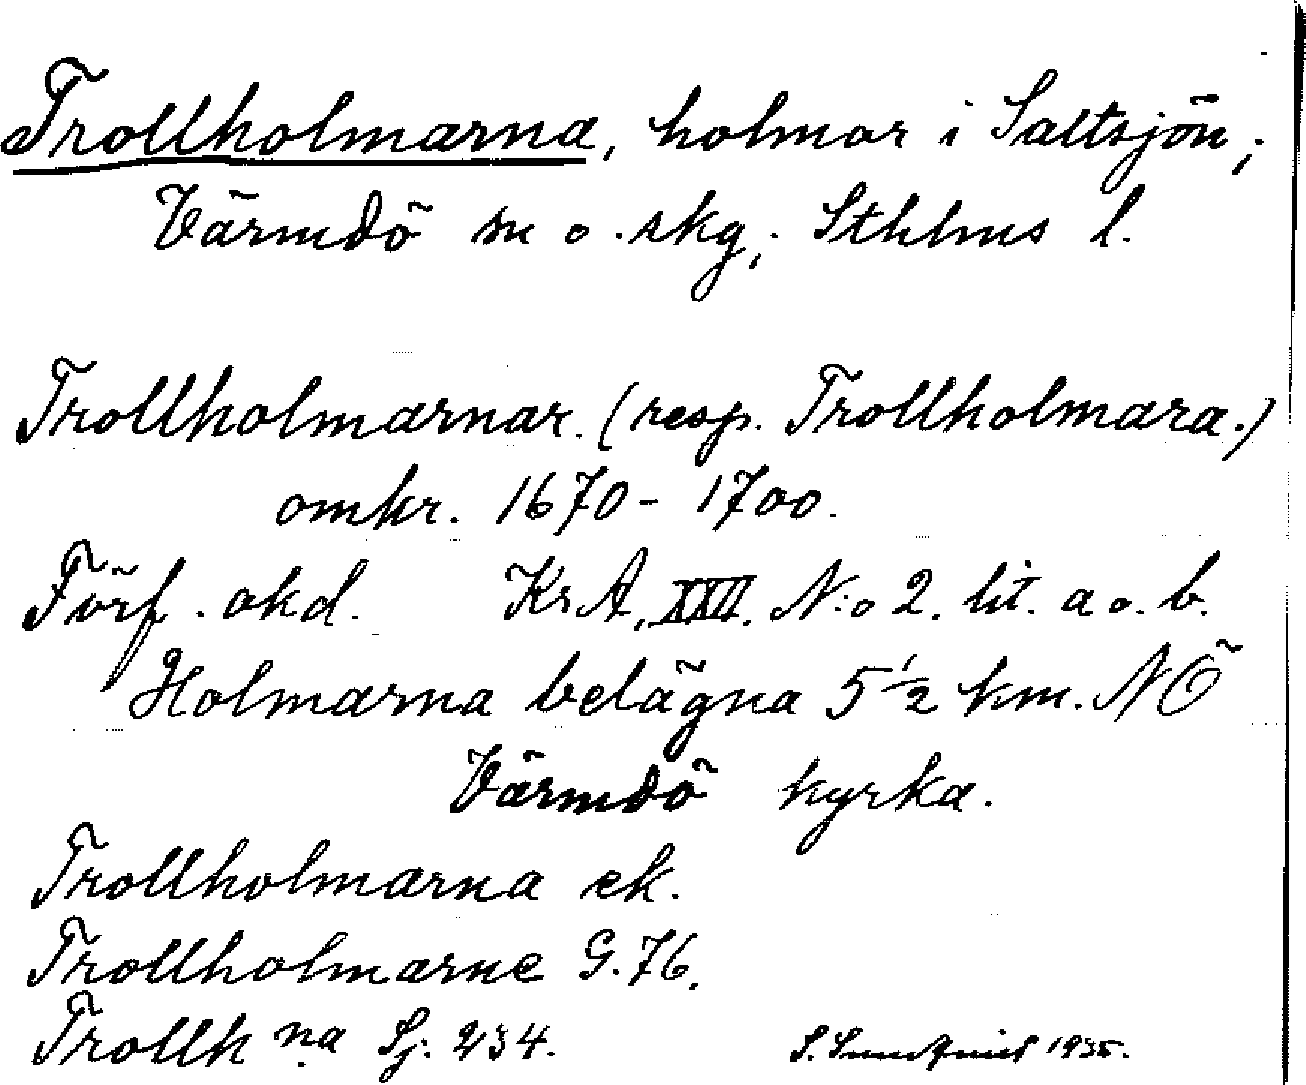 Trollholmarna, holmar i Saltsjön,
Värmdö sn o. skg, Sthlms l.
Trollholmarnar. (resp. Trollholmara.)
omkr. 1670-1700.
Förf. okd. Kr.A, XXVI. N:o 2. lit. a o. b.
Holmarna belägna 5 1/2 km. NÖ
Värmdö kyrka.
Trollholmarna ek.
Trollholmarne G. 76.
Trollh na Sj. 234.
S. Sundquist 1935.